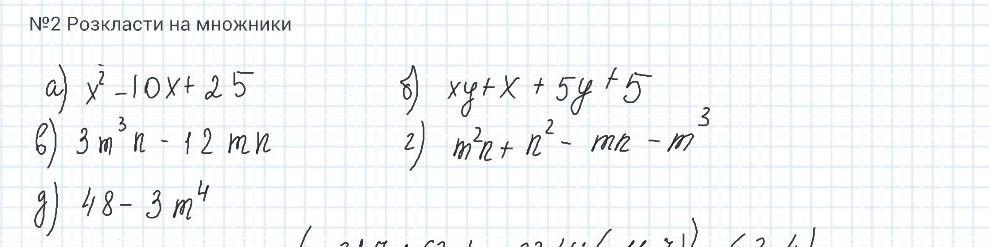 №2 Розкласти на множники
а) x² - 10x + 25 б) xy + x + 5y + 5
в) 3m³n - 12mn г) m²n + n² - mn - m³
д) 48 - 3m⁴